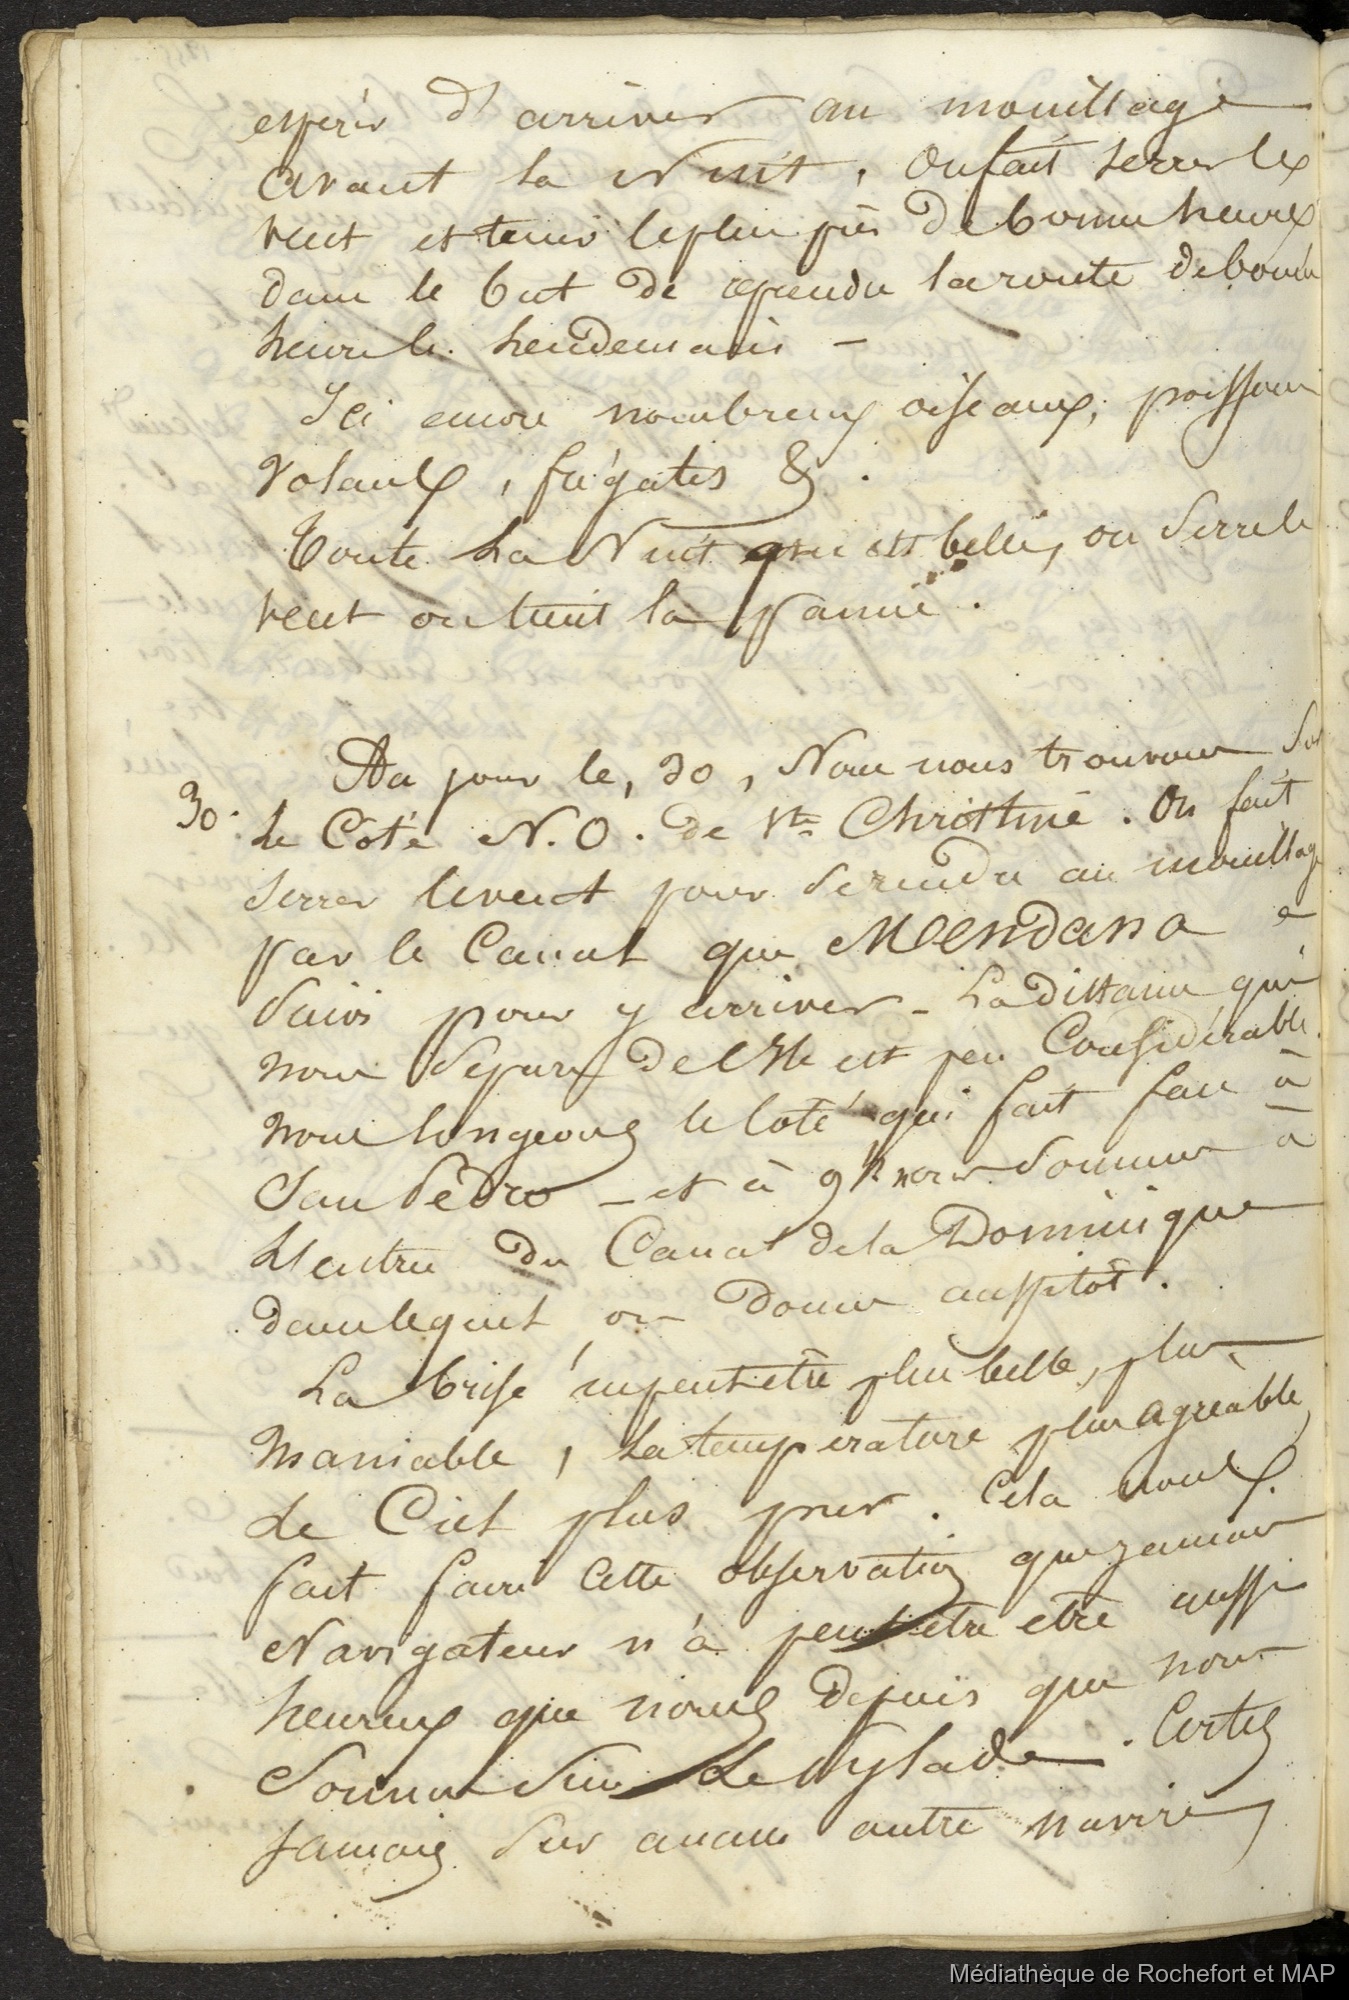 espérer d'arriver au mouillage
avant la Nuit, on fait serrer le
vent et tenir le plus près de bonne heure
dans le but de reprendre la route de bonne
heure le lendemain -
Ici encore nombreux oiseaux, poissons
volants, frégates &.
Toute la Nuit qui est belle, on serre le
vent on tient la panne.
30. Au jour le, 30, Nous nous trouvons sur
le Coté N.O. de Ste Christine. On fait
serrer le vent pour se rendre au mouillage
par le Canal que Mendana a
suivi pour y arriver - La distance qui
nous sépare de l'Ile est peu Considérable.
nous longeons le coté qui fait face à
San Pédro - et à 9h nous sommes à
l'entrée du Canal de la Dominique
dans lequel on donne aussitôt.
La brise ne peut être plus belle, plus
maniable, la température plus agréable,
le Ciel plus pur. Cela nous
fait faire cette observation que jamais
Navigateur n'à peut être été aussi
heureux que nous depuis que nous
sommes sur le Pylade. Certes
jamais sur aucun autre navire,
Médiathèque de Rochefort et MAP